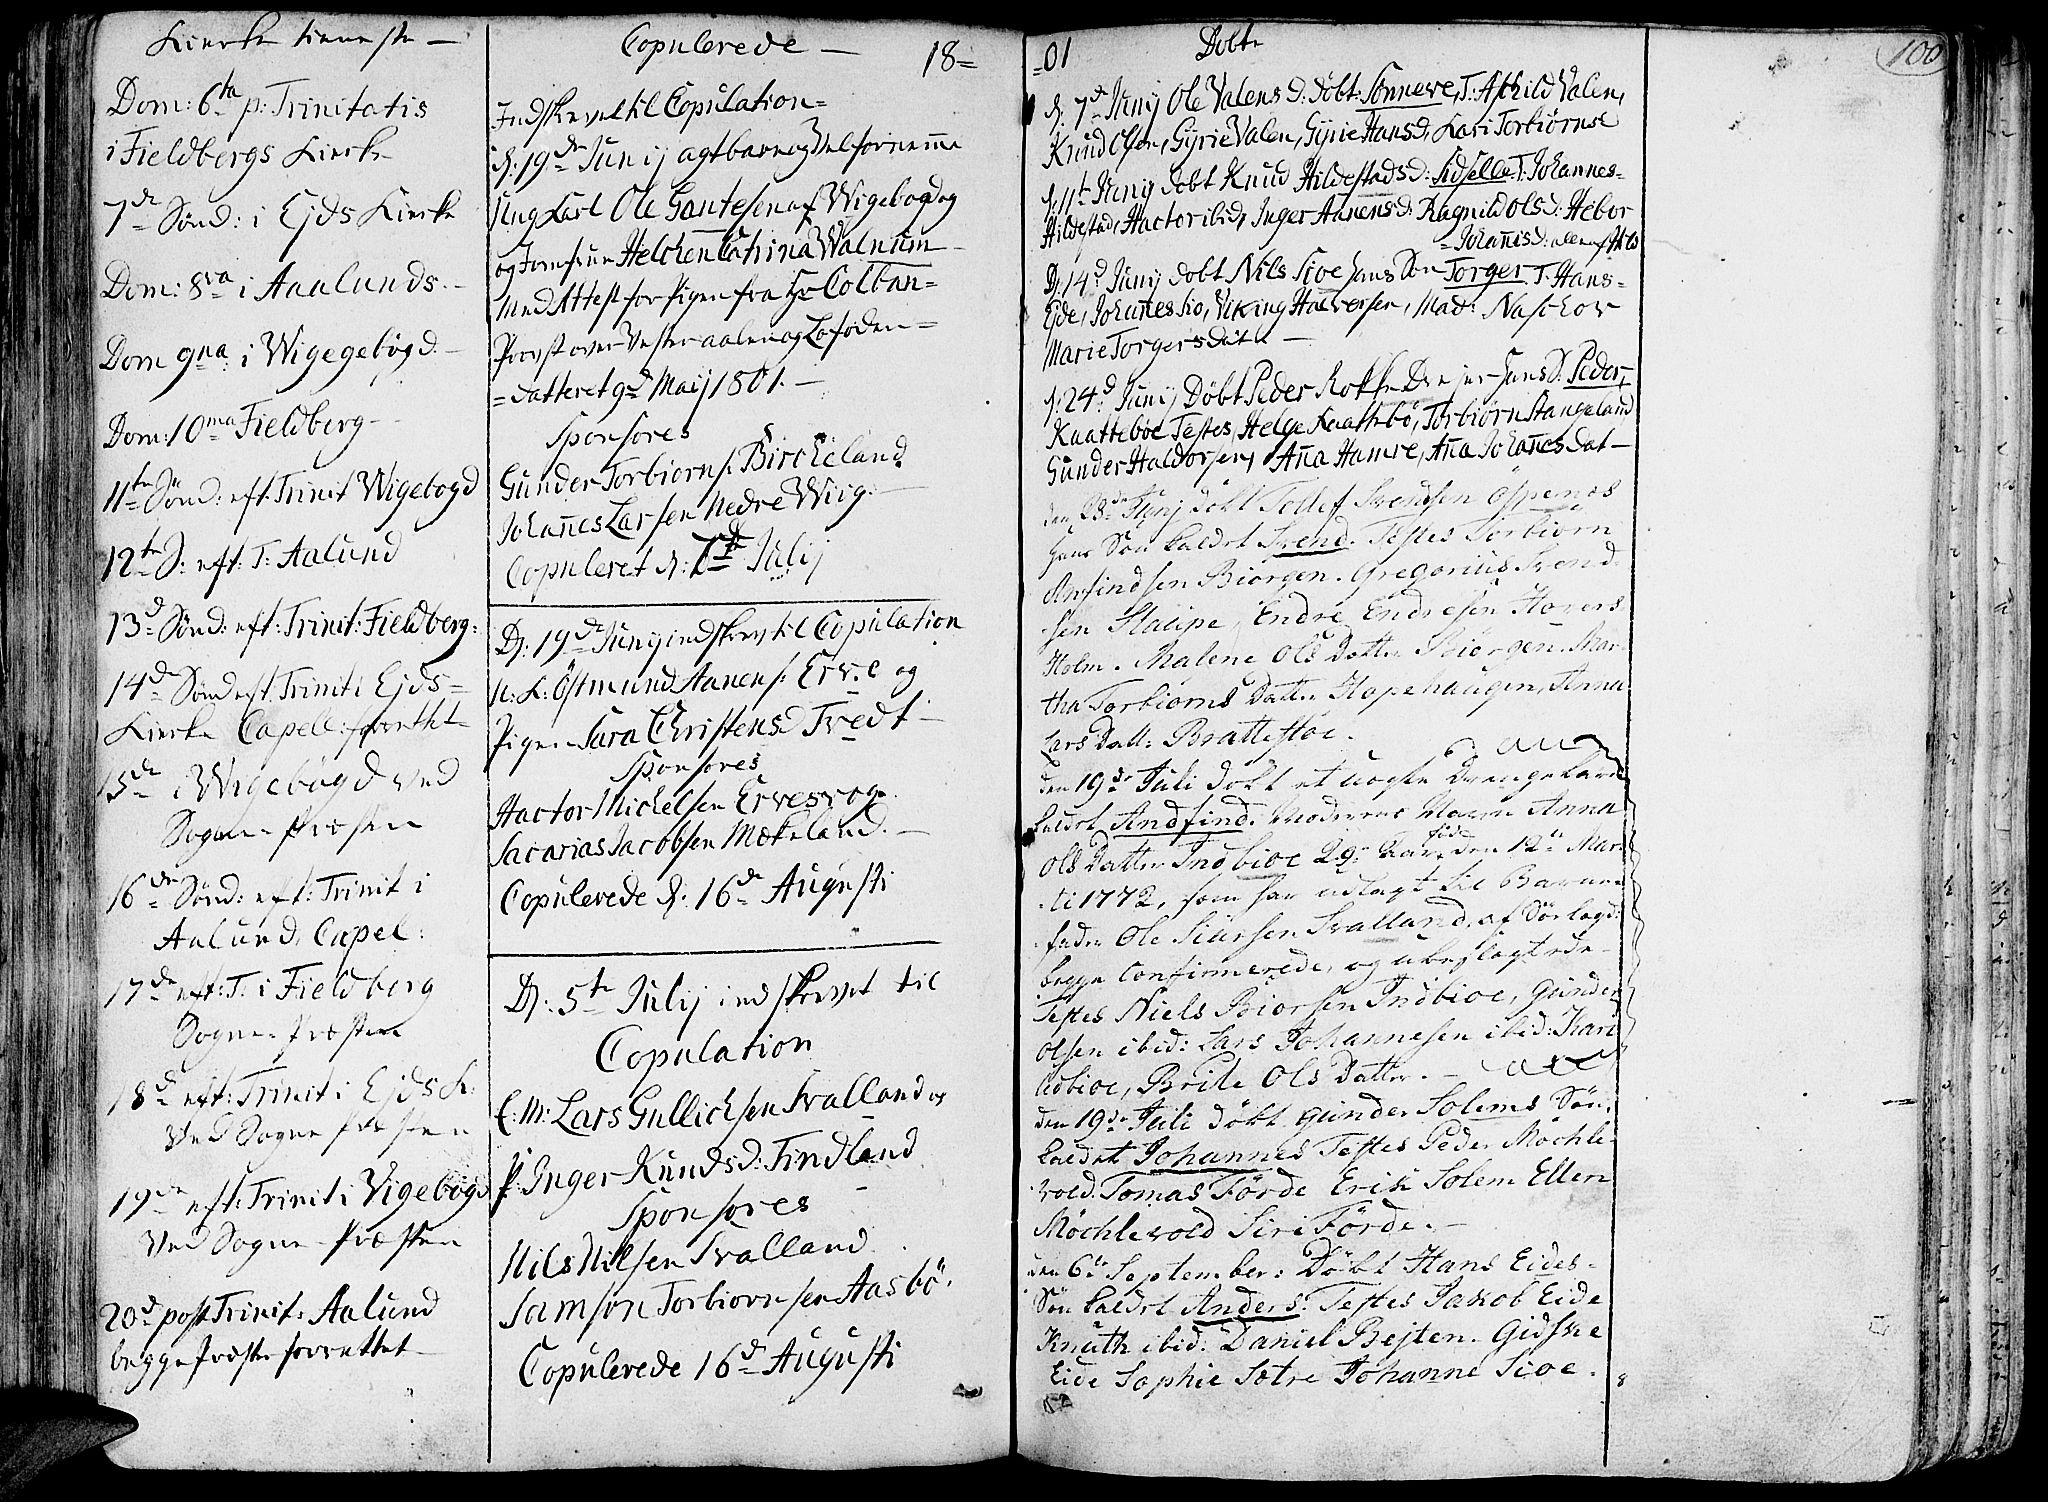 Kierke tieneste —
Dom: 6ta p: Trinitatis
i Fieldbergs Kierke
7de Sønd: i Ejds Kierke
Dom: 8va i Aalunds.
Dom 9na i Wigegebøgd. —
Dom: 10ma Fieldberg —
11te Sønd: eft: Trinit Wigebogd
12te S: eft: T: Aalund
13d Sønd: eft: Trinit: Fieldberg:
14d Sønd eft Trinit i Ejds=
Kierke Capell: forrettet
15de i Wigebøgd ved
Sogne-Præsten
16de Sønd: eft: Trinit i
Aalund, Capel:
17de eft: T: i Fieldberg
Sogne-Præsten
18de eft: Trinit i Ejds K:
ved Sogne Præsten
19de eft: Trinit i Vigebøgd
ved Sogne-Præsten
20d post Trinit: Aalund
begge Præster forrettet —
Copulerede — 18=
Indskrevet til Copulation=
d: 19de Junij agtbare og Velfornemme
Ungkarl Ole Gantesen af Wigebogd og
og Jomfrue Helchen Catrina Walnum
med Attest for Pigen fra Hr Colban=
Provst over Vesteraalen og Lofoden=
=datteret 9de Maij 1801. —
Sponsores
Gunder Torbiorns. Bircheland
Johannes Larsen Nedre Wiig. —
Copuleret d: 7de Julij
D: 19de Junij indskrev til Copulation
U: K: Östmund Aanens. Erve og
Pigen Sara Christensd Tvedt —
Sponsores
Hactor Michelsen Ervesvog
Sacarias Jacobsen Mækeland. —
Copulerede d: 16de Augusti
D: 5te Julij indskrevet til
Copulation
E: M: Lars Gullichsen Svalland og
P: Inger Knudsd: Findland
Sponsores
Nils Nilsen Svalland
Samson Torbiornsen Aasbö.
Copulerede 16de Augusti
=01 Dobte 100
d: 7de Junij Ole Valens d: döbt: Sönneve, T: Askild Valen,
Knud Olsen, Gÿrie Valen, Gÿrie Hansd, Kari Torbiörnsd
d: 11te Junij döbt Knud Hildestads d: Sidselle T: Johannes=
Hildestad, Hactor ibid, Inger Aanens d: Ragnild Ols d: Hebor
=Johanisd:
D: 14d Junij döbt Nils Sioe hans Søn Torger T: Hans=
Ejde, Johannes Sio, Viking Halversen, Mad: Naschow
Marie Torgersdat: —
d: 24d Junij Döbt Peder Rokke hans d: Peder,
Kaatteboe Testes, Helge Kaattebö, Torbiörn Stangeland
Gunder Haldorsen, Ana Hamre, Ana Johanesdat —
den 28de Junij döbt Tollef Svendsen Oppenæs
hans Søn kaldet Svend. Testes Torbiörn
Arfindsen Biorgen. Gregorius Svend=
sen Staupe, Endre Endresen Hovers
Holm. Malene Ols Datter Biorgen. Mar
tha Torbiorns Datter Hopehaugen, Anna
Lars Datt: Brattestoe.
den 19de Juli döbt et uægte Drengebarn
kaldet Andfind. Moderens Navn Anna
Ols Datter Indbioe 29 Aar, föd den 12te Mar
ti 1772, som har udlagt til Barne
fader Ole Siursen Svalland, af Sörlagd:
begge Confirmerede, og ubeslægtede.
Testes Niels Biorsen Indbioe, Gunder
Olsen ibid: Lars Johannesen ibid: Kari
Udbioe, Brite Ols Datter. —
den 19de Juli döbt Gunder Solems Søn,
kaldet Johannes Testes Peder Möchle-
vold. Tomas Förde Erik Solem Ellen
Möchlevold Siri Förde. —
den 6te September: Döbt Hans Eides=
Søn kaldet Anders. Testes Jakob Eide
Knuth ibid: Daniel Bejten. Gidske
Eide Sophie Sætre Johanne Sioe.
8